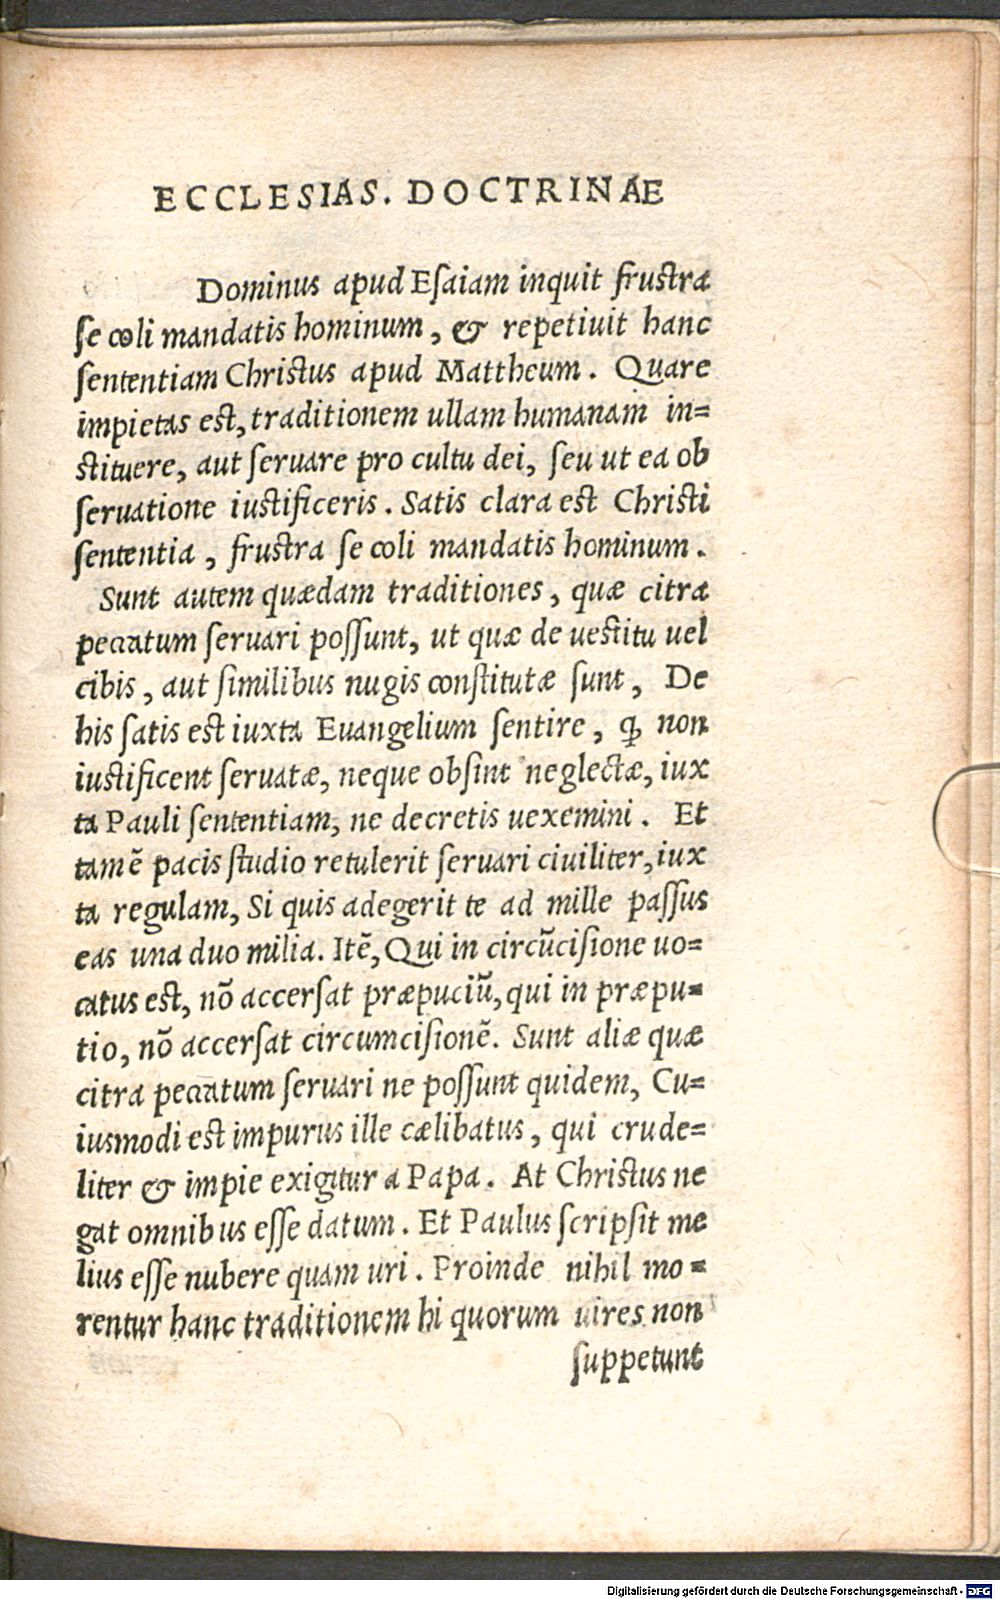 ECCLESIAS. DOCTRINAE
Dominus apud Eſaiam inquit fruſtra
ſe coli mandatis hominum, & repetiuit hanc
ſententiam Chriſtus apud Mattheum. Quare
impietas eſt, traditionem ullam humanam in=
ſtituere, aut ſeruare pro cultu dei, ſeu ut ea ob
ſeruatione iuſtificeris. Satis clara eſt Chriſti
ſententia, fruſtra ſe coli mandatis hominum.
Sunt autem quædam traditiones, quæ citra
peccatum ſeruari poſſunt, ut quæ de ueſtitu uel
cibis, aut ſimilibus nugis conſtitutæ ſunt, De
his ſatis eſt iuxta Euangelium ſentire, ꝙ non
iuſtificent ſeruatæ, neque obſint neglectæ, iux
ta Pauli ſententiam, ne decretis uexemini. Et
tamē pacis ſtudio retulerit ſeruari ciuiliter, iux
ta regulam, Si quis adegerit te ad mille paſſus
eas una duo milia. Itē, Qui in circūciſione uo=
catus eſt, nō accerſat præpuciū, qui in præpu=
tio, nō accerſat circumciſionē. Sunt aliæ quæ
citra peccatum ſeruari ne poſſunt quidem, Cu=
iusmodi eſt impurus ille cælibatus, qui crude=
liter & impie exigitur a Papa. At Chriſtus ne
gat omnibus eſſe datum. Et Paulus ſcripſit me
lius eſſe nubere quam uri. Proinde nihil mo=
rentur hanc traditionem hi quorum uires non
ſuppetunt
Digitalisierung gefördert durch die Deutsche Forschungsgemeinschaft - DFG